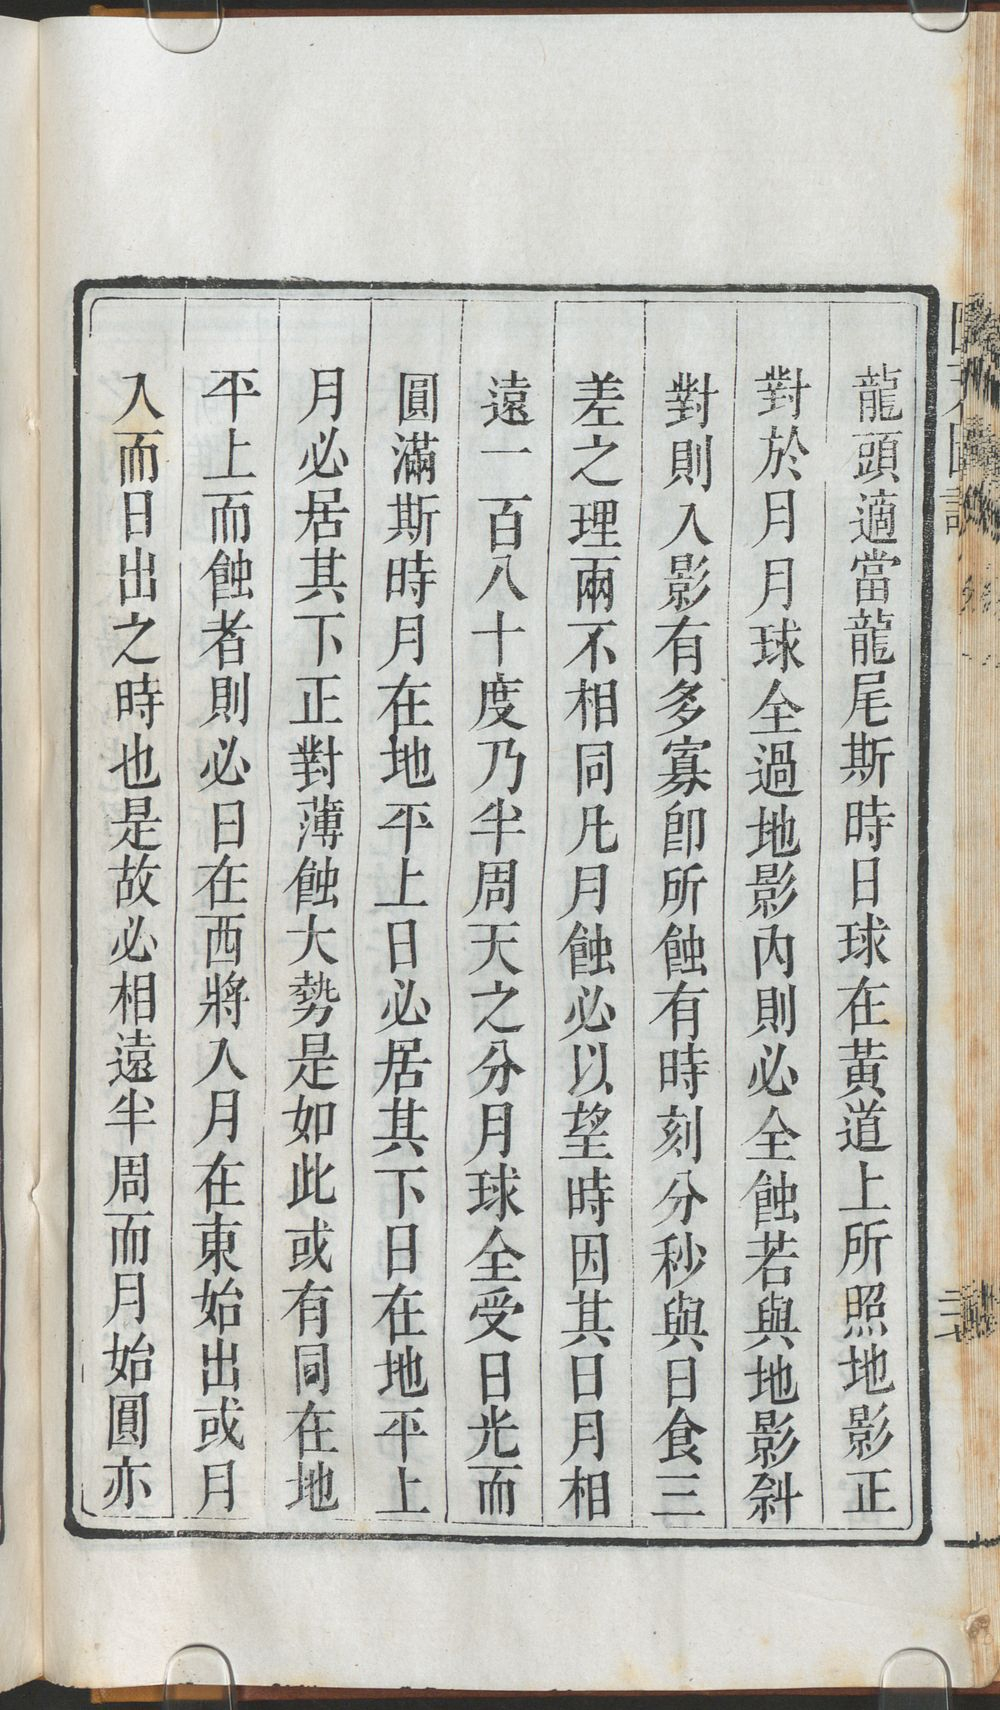 龍頭適當龍尾斯時日球在黃道上所照地影正
對於月月球全過地影內則必全蝕若與地影斜
對則入影有多寡卽所蝕有時刻分秒與日食三
差之理兩不相同凡月蝕必以望時因其日月相
遠一百八十度乃半周天之分月球全受日光而
圓滿斯時月在地平上日必居其下日在地平上
月必居其下正對薄蝕大勢是如此或有同在地
平上而蝕者則必日在西將入月在東始出或月
入而日出之時也是故必相遠半周而月始圓亦